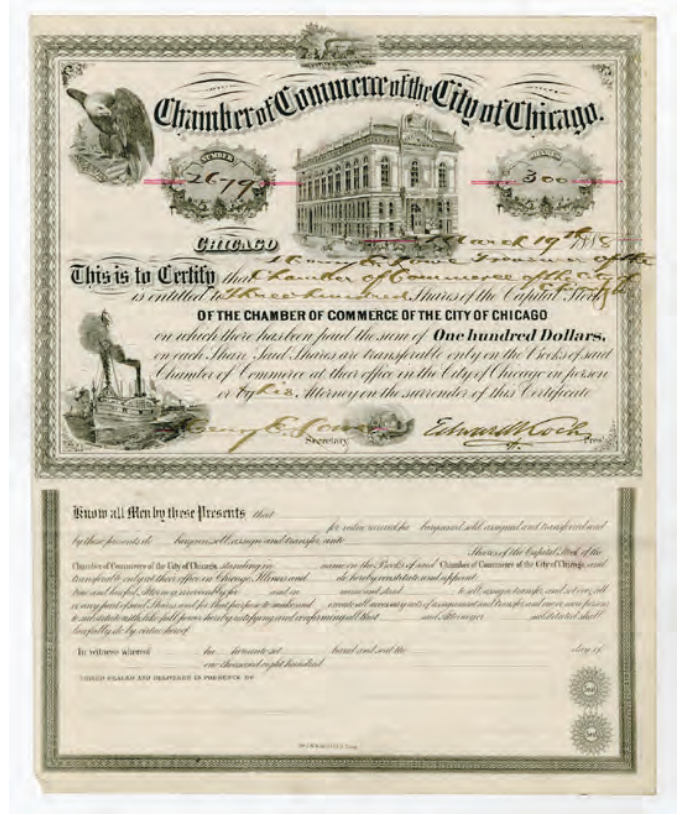 Chamber of Commerce of the City of Chicago.
NUMBER
2679
SHARES
300
CHICAGO March 19th 1888
This is to Certify that Henry E. Lowe Treasurer of the
Chamber of Commerce of the City of Chicago
is entitled to Three hundred Shares of the Capital Stock
OF THE CHAMBER OF COMMERCE OF THE CITY OF CHICAGO
on which there has been paid the sum of One hundred Dollars,
on each Share. Said Shares are transferable only on the Books of said
Chamber of Commerce at their office in the City of Chicago in person
or by his Attorney on the surrender of this Certificate
Secretary
Edward Koch
Prest
Know all Men by these Presents that
for value received ha bargained, sold, assigned and transferred and
by these presents do bargain, sell, assign and transfer unto
Shares of the Capital Stock of the
Chamber of Commerce of the City of Chicago, standing in name on the Books of said Chamber of Commerce of the City of Chicago, and
transferable only at their office in Chicago, Illinois and do hereby constitute and appoint
true and lawful Attorney irrevocably for and in name and stead to sell, assign, transfer, and set over, all
or any part of said Shares and for that purpose to make and execute all necessary acts of assignment and transfer, and one or more persons
to substitute with like full power hereby ratifying and confirming all that said Attorney or substituted shall
lawfully do by virtue hereof
In witness whereof ha hereunto set hand and seal the day of
one thousand eight hundred
SIGNED SEALED AND DELIVERED IN PRESENCE OF